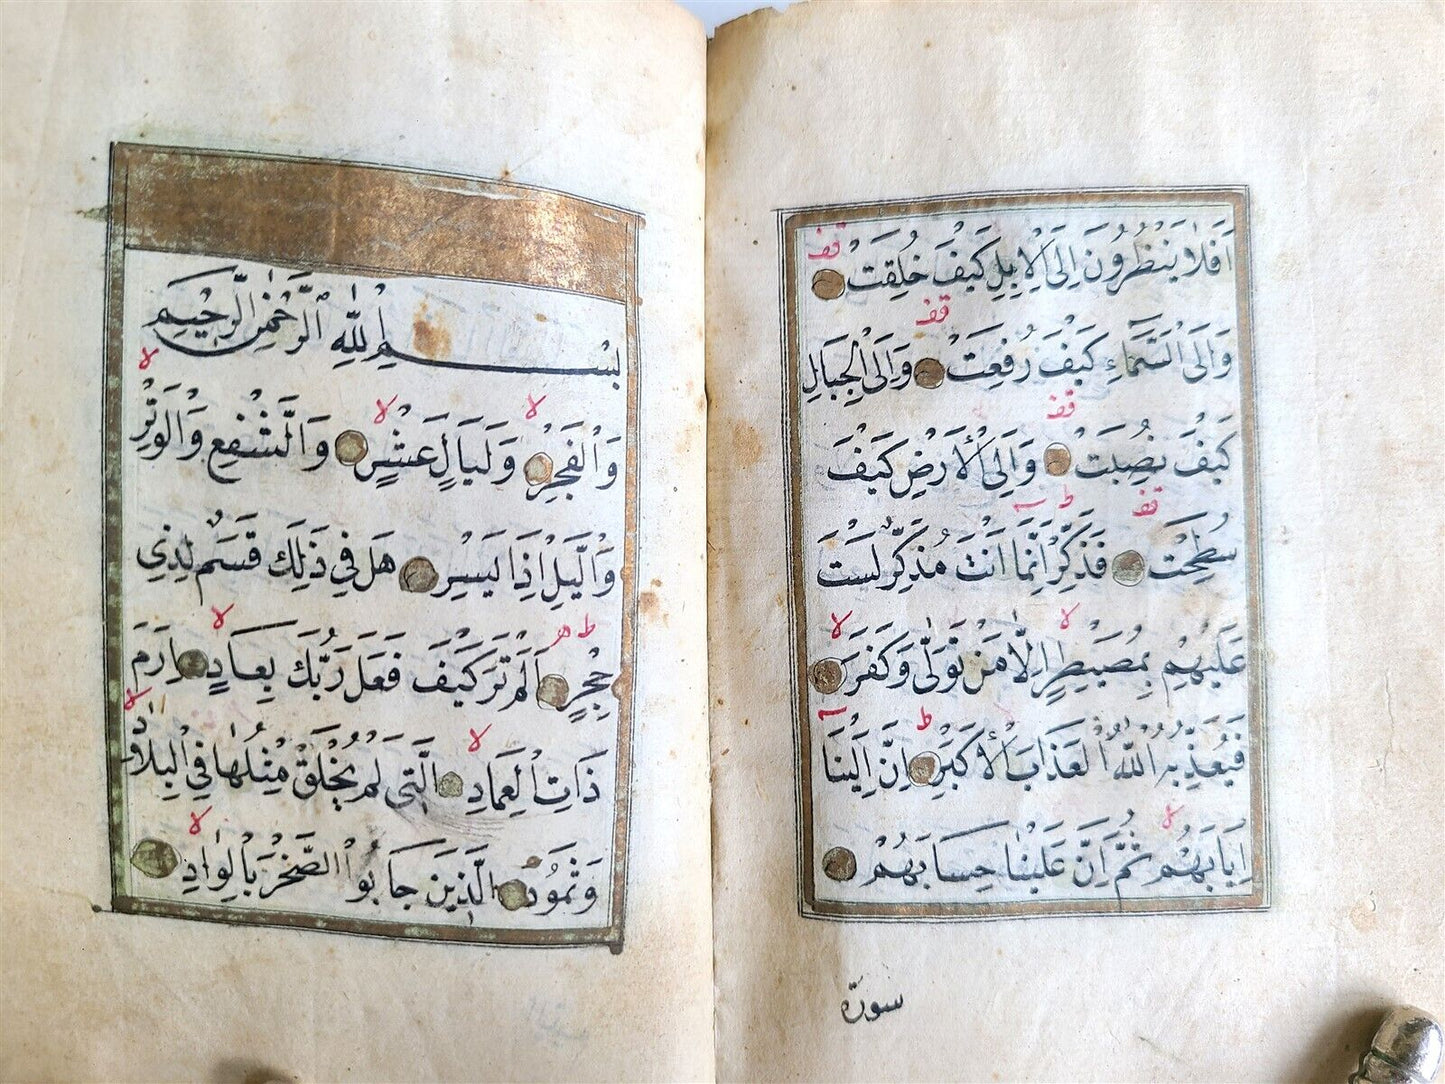 اَفَلَا يَنْظُرُونَ اِلَى الْاِبِلِ كَيْفَ خُلِقَتْ قف
وَاِلَى السَّمَاءِ كَيْفَ رُفِعَتْ قف وَاِلَى الْجِبَالِ
كَيْفَ نُصِبَتْ قف وَاِلَى الْاَرْضِ كَيْفَ
سُطِحَتْ قف فَذَكِّرْ ط اِنَّمَا اَنْتَ مُذَكِّرٌ لَسْتَ
عَلَيْهِمْ بِمُصَيْطِرٍ لا اِلَّا مَنْ تَوَلّٰى وَكَفَرَ لا
فَيُعَذِّبُهُ اللّٰهُ الْعَذَابَ الْاَكْبَرَ ط اِنَّ اِلَيْنَا
اِيَابَهُمْ لا ثُمَّ اِنَّ عَلَيْنَا حِسَابَهُمْ
سورة
بِسْمِ اللّٰهِ الرَّحْمٰنِ الرَّحِيمِ
وَالْفَجْرِ لا وَلَيَالٍ عَشْرٍ لا وَالشَّفْعِ وَالْوَتْرِ لا
وَالَّيْلِ اِذَا يَسْرِ هَلْ فِي ذٰلِكَ قَسَمٌ لِذِي
حِجْرٍ ط اَلَمْ تَرَ كَيْفَ فَعَلَ رَبُّكَ بِعَادٍ لا اِرَمَ
ذَاتِ الْعِمَادِ لا الَّتِي لَمْ يُخْلَقْ مِثْلُهَا فِي الْبِلَادِ لا
وَثَمُودَ الَّذِينَ جَابُوا الصَّخْرَ بِالْوَادِ لا